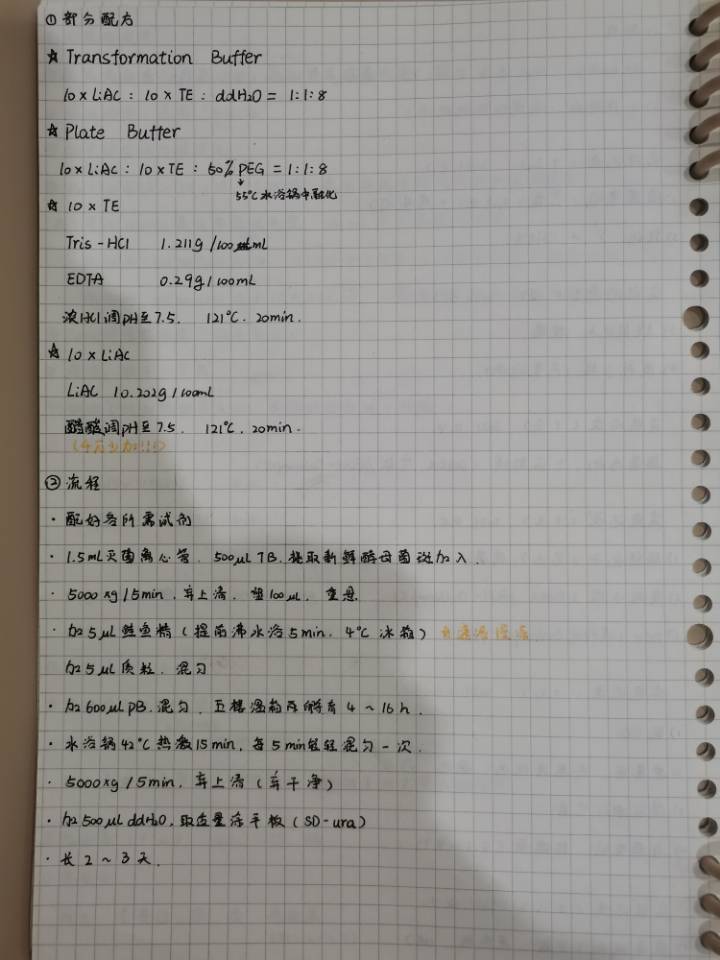 ① 部分配方
☆ Transformation Buffer
10×LiAc : 10×TE : ddH2O = 1:1:8
☆ Plate Buffer
10×LiAc : 10×TE : 50% PEG = 1:1:8
55℃水浴锅中融化
☆ 10×TE
Tris-HCl 1.211g/100mL
EDTA 0.29g/100mL
浓HCl调pH至7.5. 121℃. 20min.
☆ 10×LiAc
LiAc 10.202g/100mL
醋酸调pH至7.5. 121℃. 20min.
(千万少加!!!)
② 流程
· 配好各所需试剂
· 1.5mL灭菌离心管. 500μL TB. 挑取新鲜酵母菌斑加入.
· 5000×g/5min. 弃上清. 留100μL. 重悬
· 加5μL鲑鱼精(提前沸水浴5min. 4℃冰箱)
加5μL质粒. 混匀
· 加600μL PB. 混匀. 孵育4~16h.
· 水浴锅42℃热激15min, 每5min轻轻混匀一次.
· 5000×g/5min. 弃上清(弃干净)
· 加500μL ddH2O, 取适量涂平板(SD-ura)
· 长2~3天.